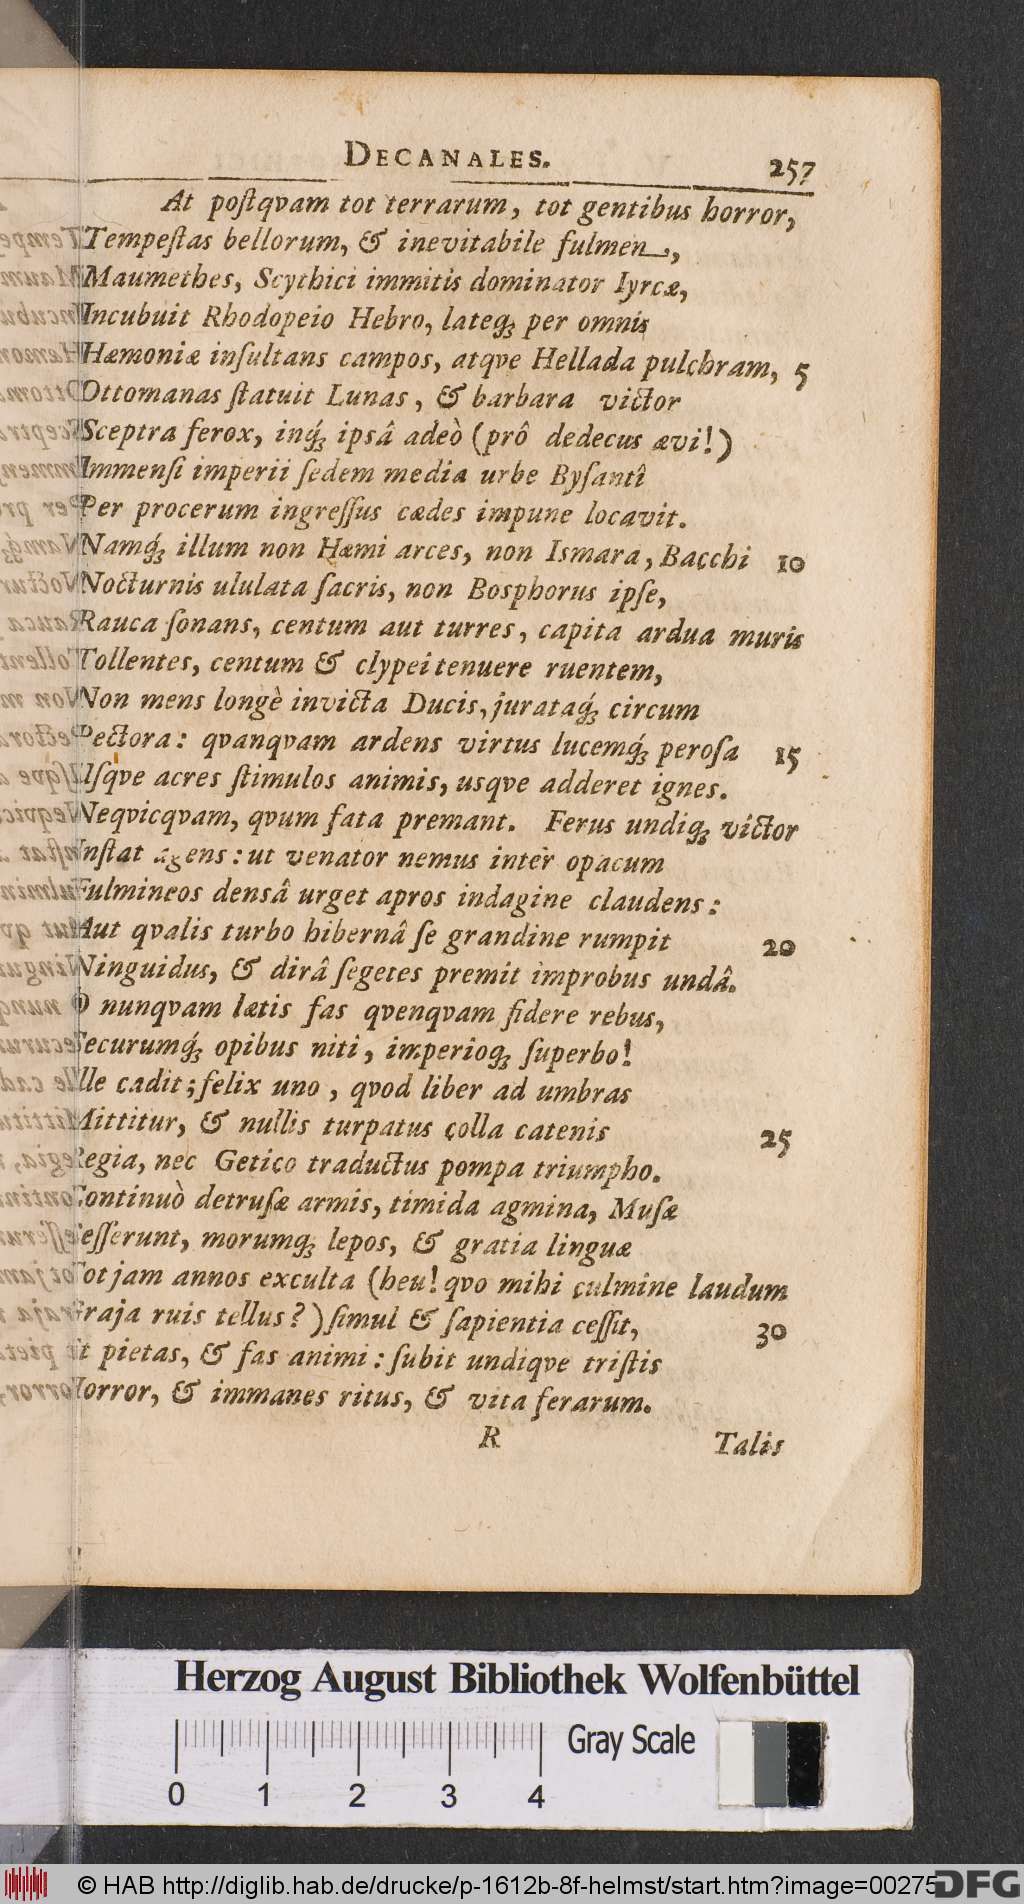 DECANALES.
257
At poſtqvam tot terrarum, tot gentibus horror,
Tempeſtas bellorum, & inevitabile fulmen,
Maumethes, Scythici immitis dominator Iyrcæ,
Incubuit Rhodopeio Hebro, lateq́; per omnis
Hæmoniæ inſultans campos, atqve Hellada pulchram, 5
Ottomanas ſtatuit Lunas, & barbara victor
Sceptra ferox, inq́; ipsâ adeò (prô dedecus ævi!)
Immenſi imperii ſedem media urbe Byſantî
Per procerum ingreſſus cædes impune locavit.
Namq́; illum non Hæmi arces, non Ismara, Bacchi 10
Nocturnis ululata ſacris, non Bosphorus ipſe,
Rauca ſonans, centum aut turres, capita ardua muris
Tollentes, centum & clypei tenuere ruentem,
Non mens longè invicta Ducis, jurataq́; circum
Pectora: qvanqvam ardens virtus lucemq́; peroſa 15
Uſqve acres ſtimulos animis, usqve adderet ignes.
Neqvicqvam, qvum fata premant. Ferus undiq; victor
Inſtat agens: ut venator nemus inter opacum
Fulmineos densâ urget apros indagine claudens:
Aut qvalis turbo hibernâ ſe grandine rumpit 20
Ninguidus, & dirâ ſegetes premit improbus undâ.
O nunqvam lætis fas qvenqvam fidere rebus,
Securumq́; opibus niti, imperioq; ſuperbo!
Ille cadit; felix uno, qvod liber ad umbras
Mittitur, & nullis turpatus colla catenis 25
Regia, nec Getico traductus pompa triumpho.
Continuò detruſæ armis, timida agmina, Muſæ
Ceſſerunt, morumq; lepos, & gratia linguæ
Tot jam annos exculta (heu! qvo mihi culmine laudum
Graja ruis tellus?) ſimul & ſapientia ceſſit, 30
Et pietas, & fas animi: ſubit undiqve triſtis
Horror, & immanes ritus, & vita ferarum.
R
Talis
Herzog August Bibliothek Wolfenbüttel
Gray Scale
0 1 2 3 4
© HAB http://diglib.hab.de/drucke/p-1612b-8f-helmst/start.htm?image=00275
DFG